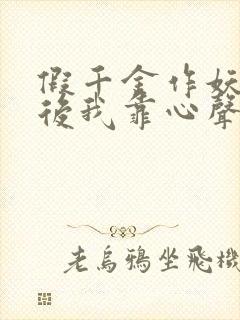 假千金作妖
後我靠心聲
老烏鴉坐飛機